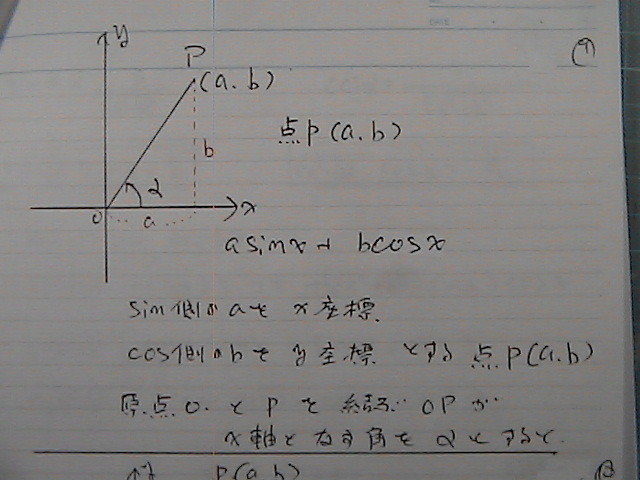 y
(ア)
P
(a.b)
点P(a.b)
b
α
O
a
x
asinx + bcosx
sin側のaを x座標
cos側のbを y座標 とする 点P(a.b)
原点O. と P を 結ぶ OP が
x軸となす角を αとすると.
P(a,b)